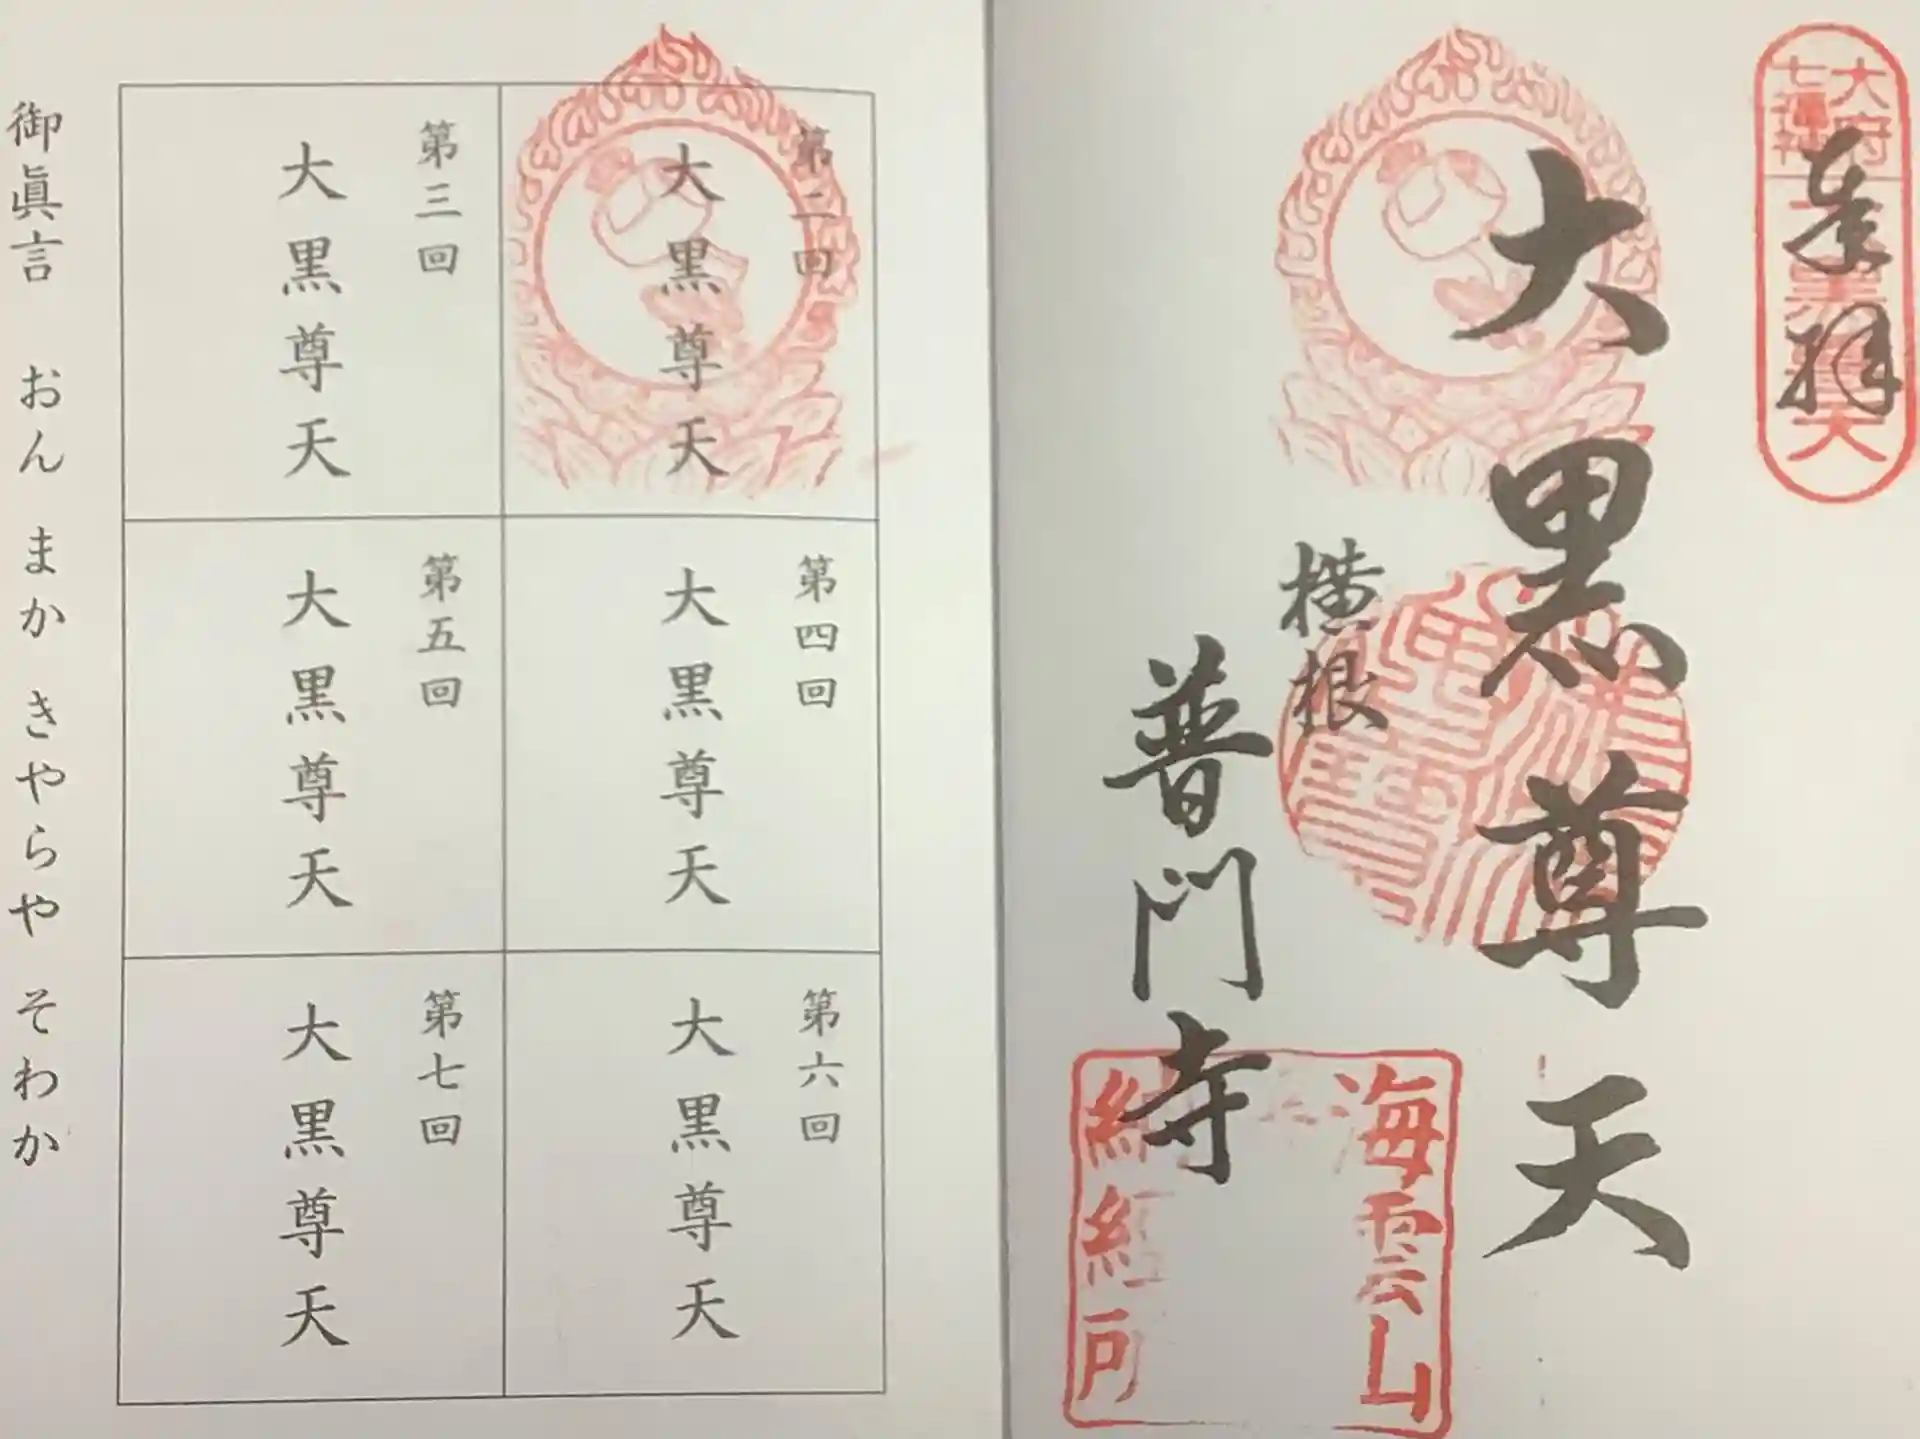 大府
七福神
大黒尊天
奉拝
大黒尊天
横根
普門寺
海雲山
納経所
第二回
大黒尊天
第三回
大黒尊天
第四回
大黒尊天
第五回
大黒尊天
第六回
大黒尊天
第七回
大黒尊天
御眞言 おん まか きやらや そわか